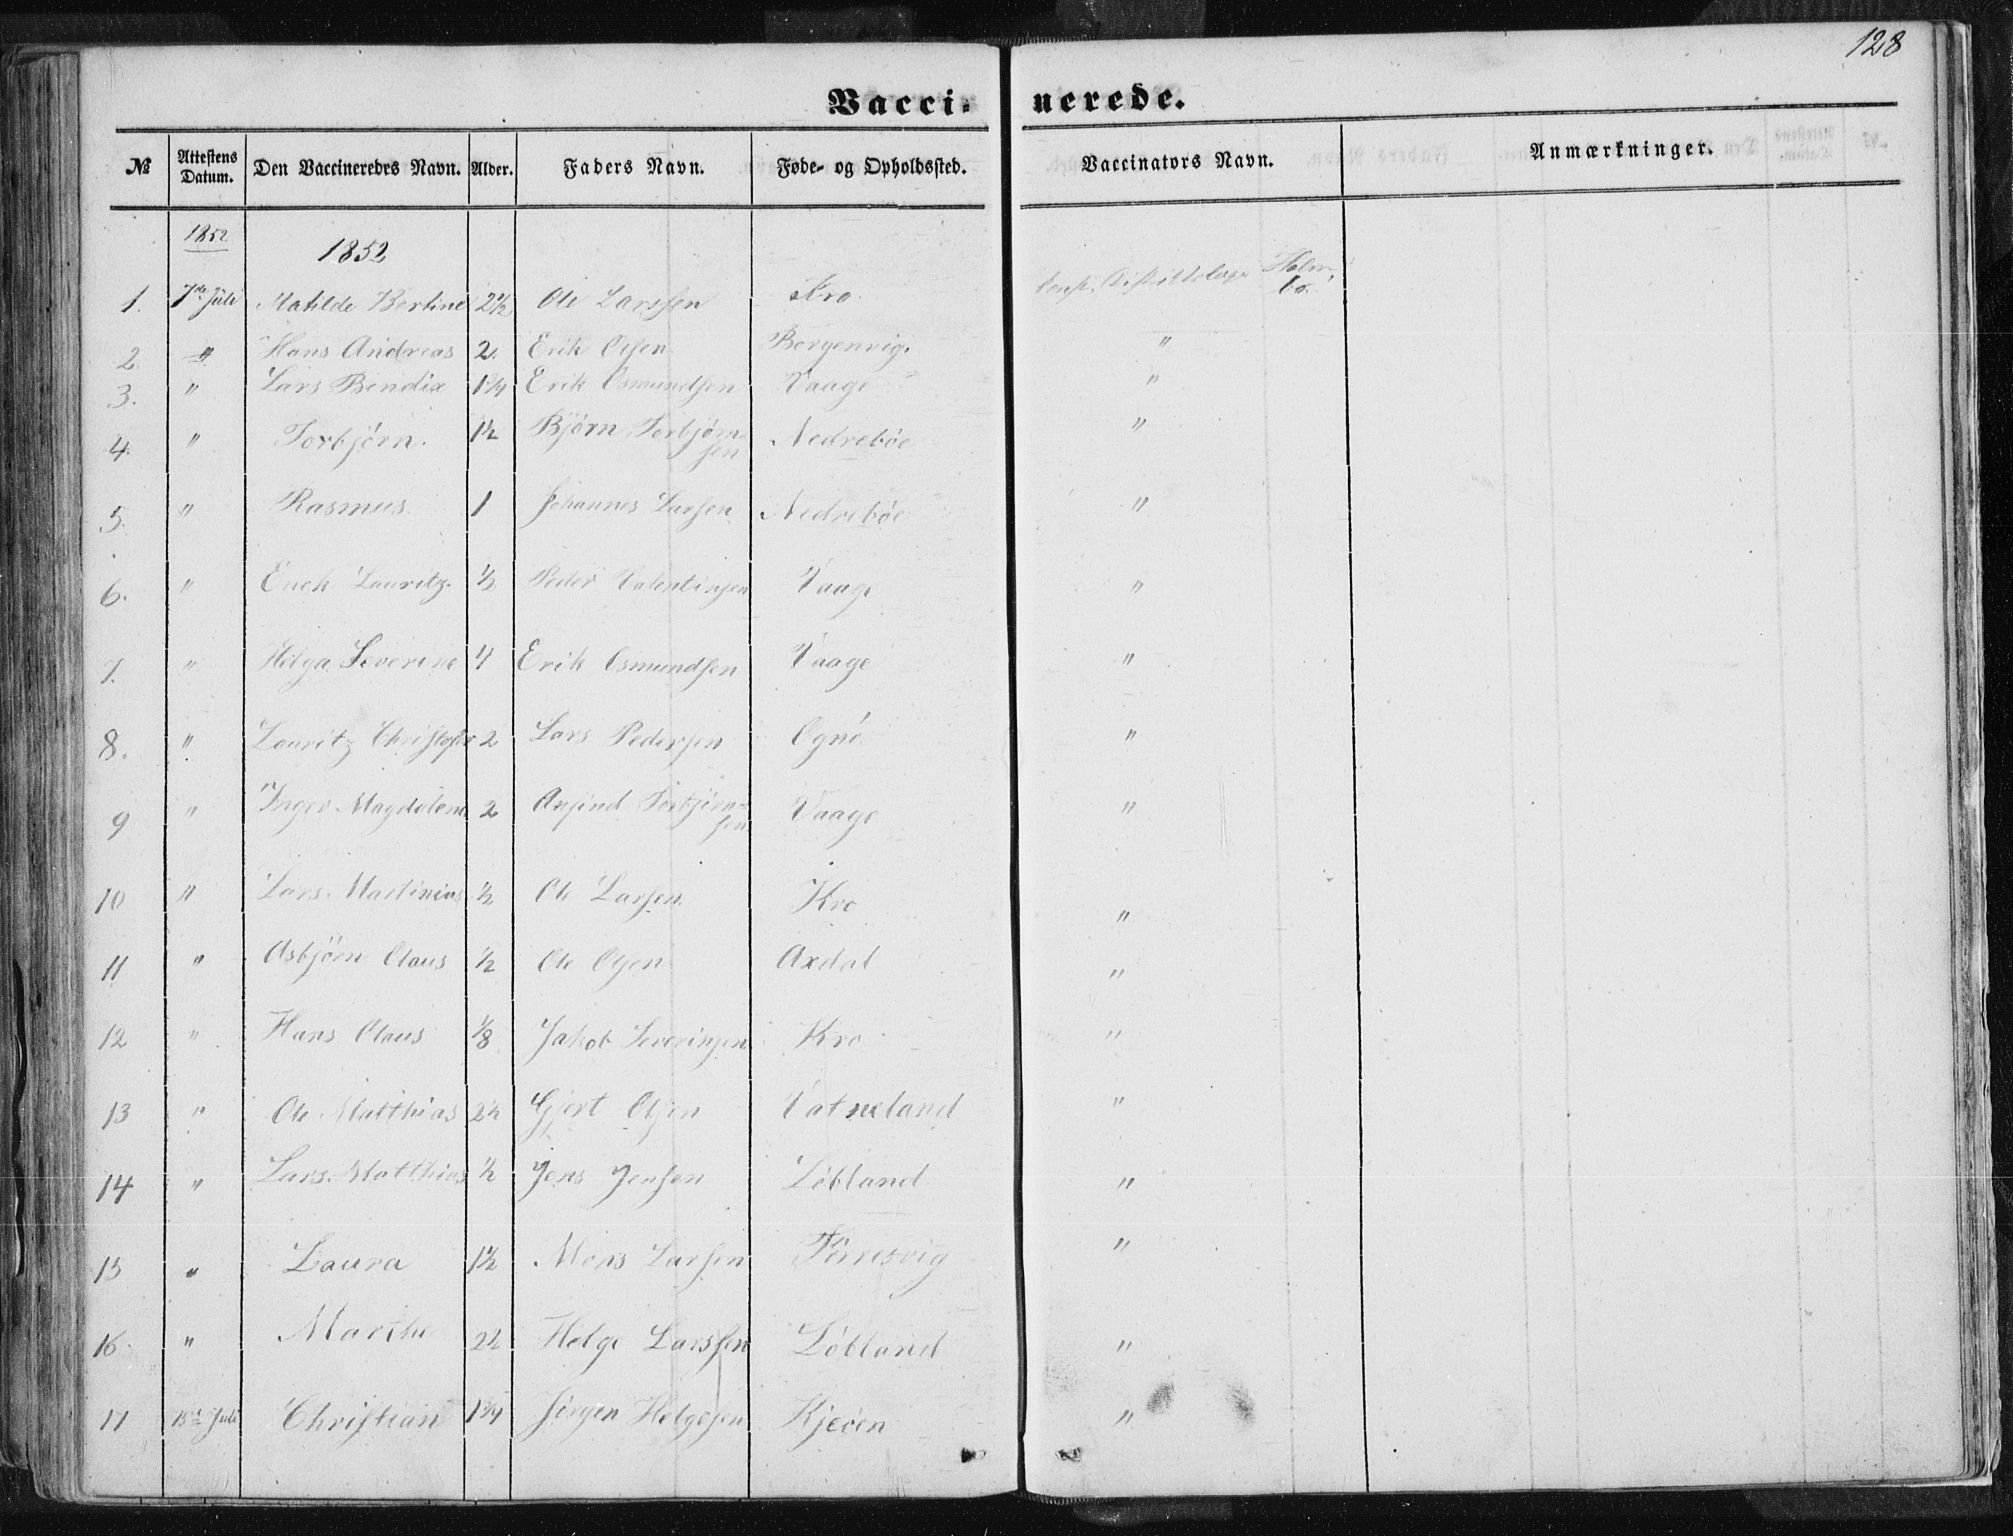 128
Vaccinerede.
№ Attestens Datum. Den Vaccineredes Navn. Alder. Faders Navn. Føde- og Opholdssted. Vaccinators Navn. Anmærkninger.
1852 1852
1. 7de Juli Matilde Bertine 2½ Ole Larssen Kro
2. " Hans Andreas 2. Erik Olsen Borgenvig. "
3. " Lars Bendix 1¾ Erik Osmundsen Vaage "
4. " Torbjørn. 1½ Bjørn Torbjørnsen Nedrebøe "
5. " Rasmus 1 Johannes Larsen Nedrebøe "
6. " Enck Lauritz. ½ Peder Valentinsen Vaage "
7. " Helga Severine 4 Erik Osmundsen Vaage "
8. " Lauritz Christopher 2 Lars Pedersen Ognø "
9 " Inger Magdalena 2 Torbjørnsen Vaage "
10 " Lars Martinius ½ Ole Larsen Kro "
11 " Asbjørn Claus ½ Ole Olsen Axdal "
12 " Hans Claus ⅛ Jakob Severinsen Kro "
13 " Ole Matthias 2½ Gjert Olsen Vatneland "
14 " Lars Matthias ½ Jens Jensen Løbland "
15 " Laura 1½ Mons Larsen Førresvig "
16. " Marthe 2½ Helge Larssen Løbland "
17 Juli Christian 1¾ Jørgen Helgesen Kjeøen "